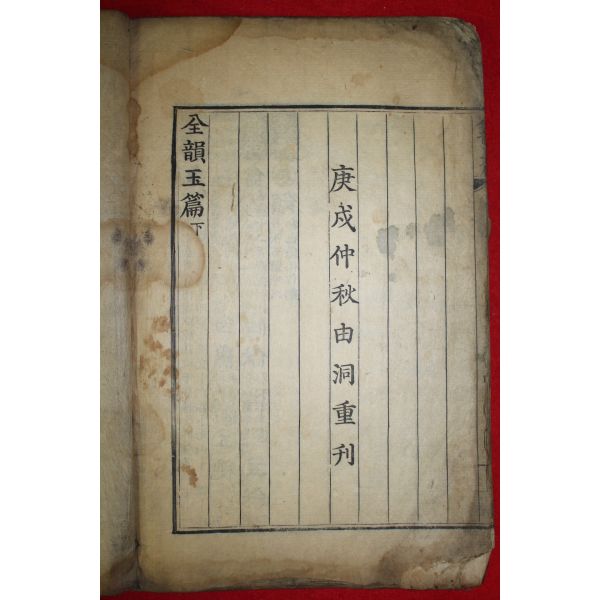 庚戌仲秋由洞重刊
全韻玉篇 下